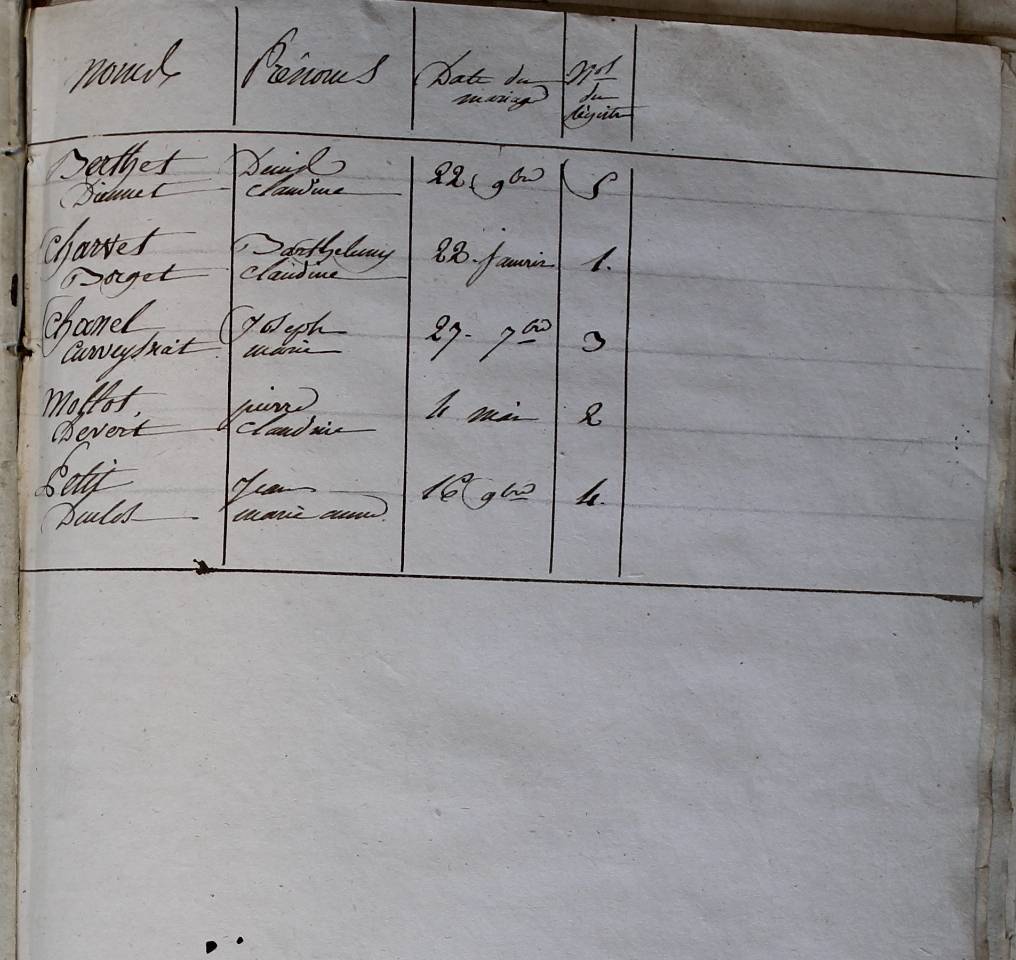 Noms Prénoms Date du mariage Nos du Registre
Berthet Denis 22 9bre 5
Diennet Claudine
Charvet Barthelemy 22 janvier 1.
Borget Claudine
Chanel Joseph 27 7bre 3
Curveyriat marie
Mollot pierre 4 mai 2
Devert Claudine
Petit Jean 16 9bre 4.
marie anne